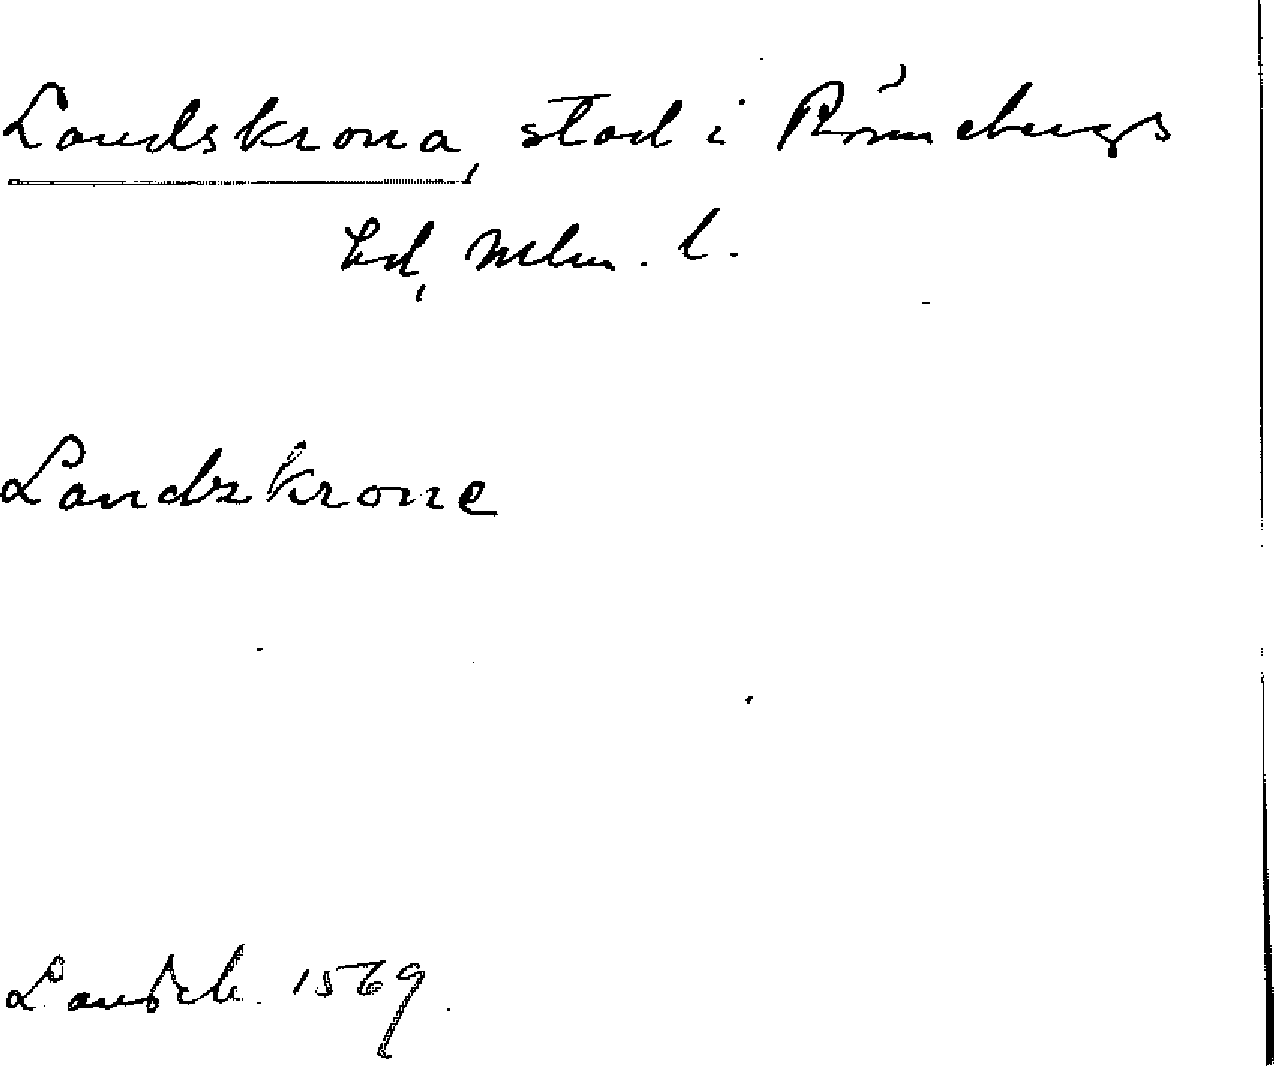 Landskrona, stad i Rönnebergs
hd, Mlm. l.
Landzkrone
1569.